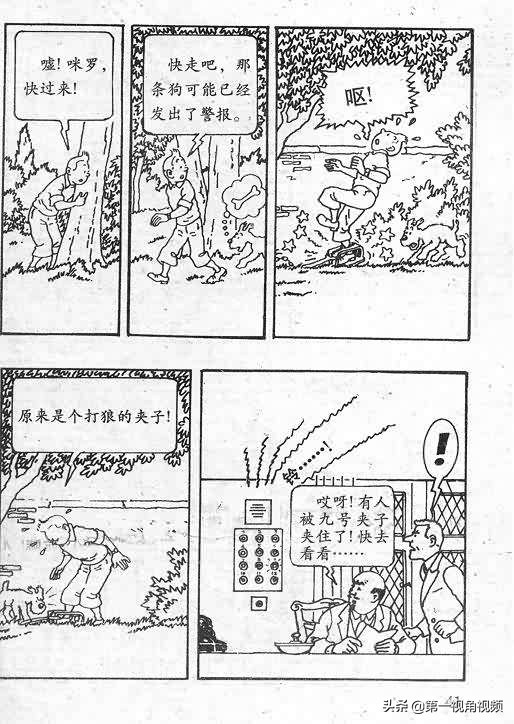 嘘！咪罗，
快过来！
快走吧，那
条狗可能已经
发出了警报。
呕！
原来是个打狼的夹子！
铃……！
哎呀！有人
被九号夹子
夹住了！快去
看看……
！
41
头条 @第一视角视频